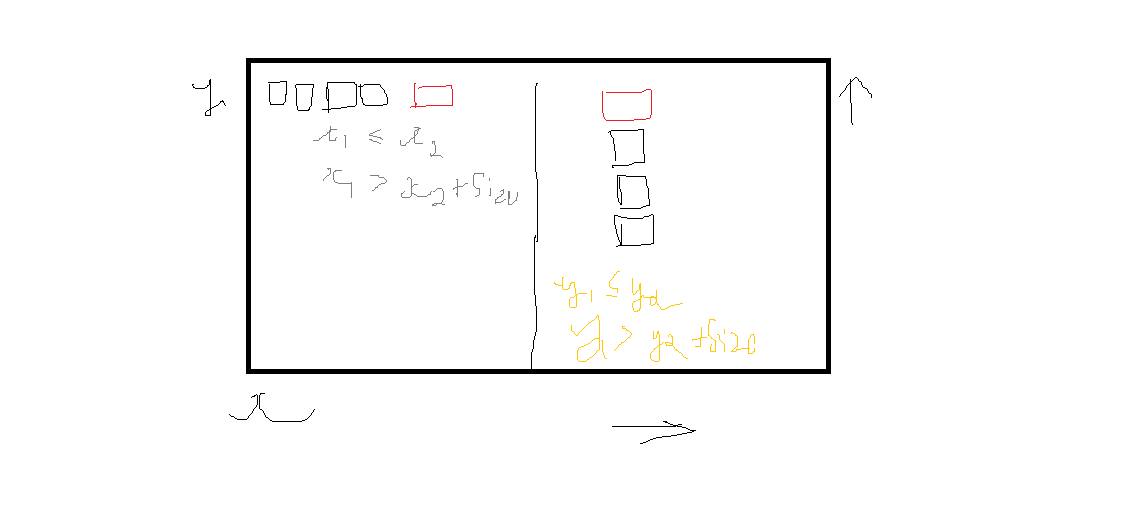 y
x1 ≤ x2
x1 > x2 + size
y1 ≤ y2
y1 > y2 + size
x